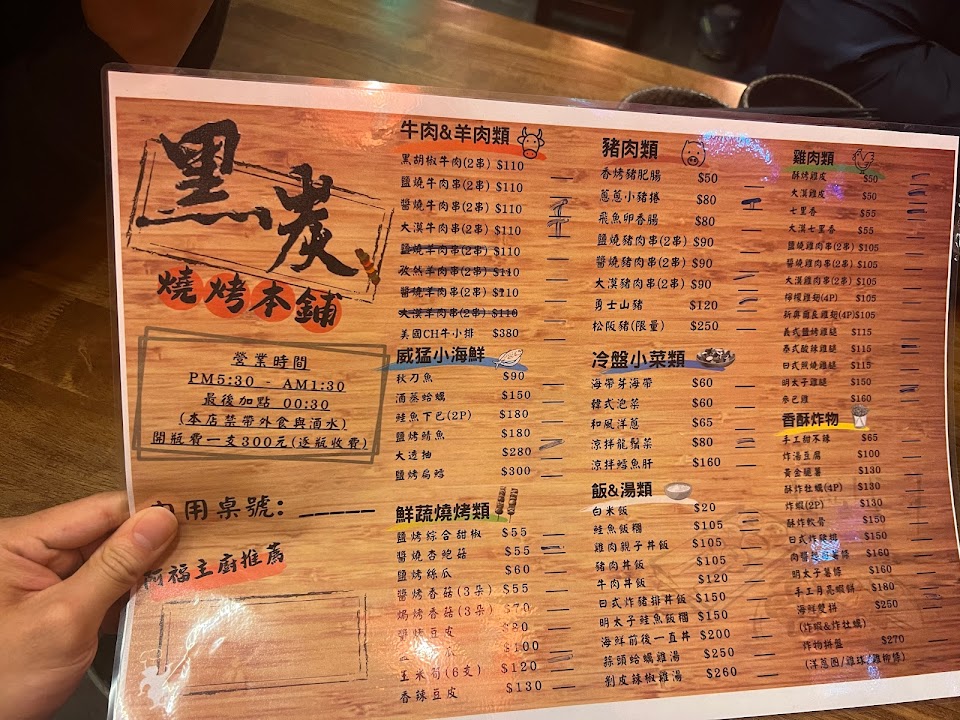 黑炭
燒烤本鋪
營業時間
PM5:30 - AM1:30
最後加點 00:30
(本店禁帶外食與酒水)
開瓶費一支300元(逐瓶收費)
用桌號:
福主廚推薦
牛肉&羊肉類
黑胡椒牛肉(2串) $110
鹽燒牛肉串(2串) $110
醬燒牛肉串(2串) $110
大漠牛肉串(2串) $110
鹽燒羊肉串(2串) $110
孜然羊肉串(2串) $110
醬燒羊肉串(2串) $110
大漠羊肉串(2串) $110
美國CH牛小排 $380
威猛小海鮮
秋刀魚 $90
酒蒸蛤蠣 $150
鮭魚下巴(2P) $180
鹽烤鯖魚 $180
大透抽 $280
鹽烤扁鱈 $300
鮮蔬燒烤類
鹽烤綜合甜椒 $55
醬燒杏鮑菇 $55
鹽烤絲瓜 $60
醬烤香菇(3朵) $55
焗烤香菇(3朵) $70
豆皮 $80
瓜 $100
玉米筍(6支) $120
香辣豆皮 $130
豬肉類
香烤豬肥腸 $50
蔥蔥小豬捲 $80
飛魚卵香腸 $80
鹽燒豬肉串(2串) $90
醬燒豬肉串(2串) $90
大漠豬肉串(2串) $90
勇士山豬 $120
松阪豬(限量) $250
冷盤小菜類
海帶芽海帶 $60
韓式泡菜 $60
和風洋蔥 $65
涼拌龍鬚菜 $80
涼拌鱈魚肝 $160
飯&湯類
白米飯 $20
鮭魚飯糰 $105
雞肉親子丼飯 $105
豬肉丼飯 $105
牛肉丼飯 $120
日式炸豬排丼飯 $150
明太子鮭魚飯糰 $150
海鮮前後一直丼 $200
蒜頭蛤蠣雞湯 $250
剝皮辣椒雞湯 $260
雞肉類
酥烤雞皮 $50
大漠雞皮 $50
七里香 $55
大漠七里香 $55
鹽燒雞肉串(2串) $105
醬燒雞肉串(2串) $105
大漠雞肉串(2串) $105
檸檬雞翅(4P) $105
新奧爾良雞翅(4P) $105
義式鹽烤雞腿 $115
泰式酸辣雞腿 $115
日式照燒雞腿 $115
明太子雞腿 $150
參巴雞 $160
香酥炸物
手工甜不辣 $65
炸湯豆腐 $100
黃金脆薯 $130
酥炸牡蠣(4P) $130
炸蝦(2P) $130
酥炸軟骨 $150
日式炸豬排 $150
肉醬起司薯條 $160
明太子薯條 $160
手工月亮蝦餅 $180
海鮮雙拼 $250
(炸蝦&炸牡蠣)
炸物拼盤 $270
(洋蔥圈/雞球/雞柳條)